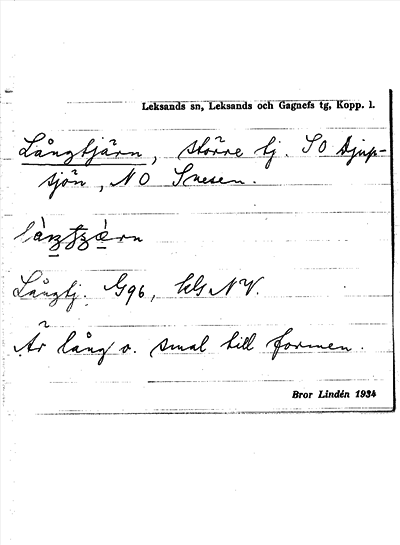 Leksands sn, Leksands och Gagnefs tg, Kopp. l.
Långtjärn, större tj. SO Djup-
sjön, NO Snesen.
Långtj. G96, kls NV.
Är lång o. smal till formen.
Bror Lindén 1934